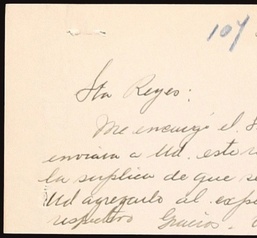 107
Sta Reyes:
Me encargó el S
enviara a Ud. este
la suplica de que se
Ud agregarlo al exp
respectivo Gracias.